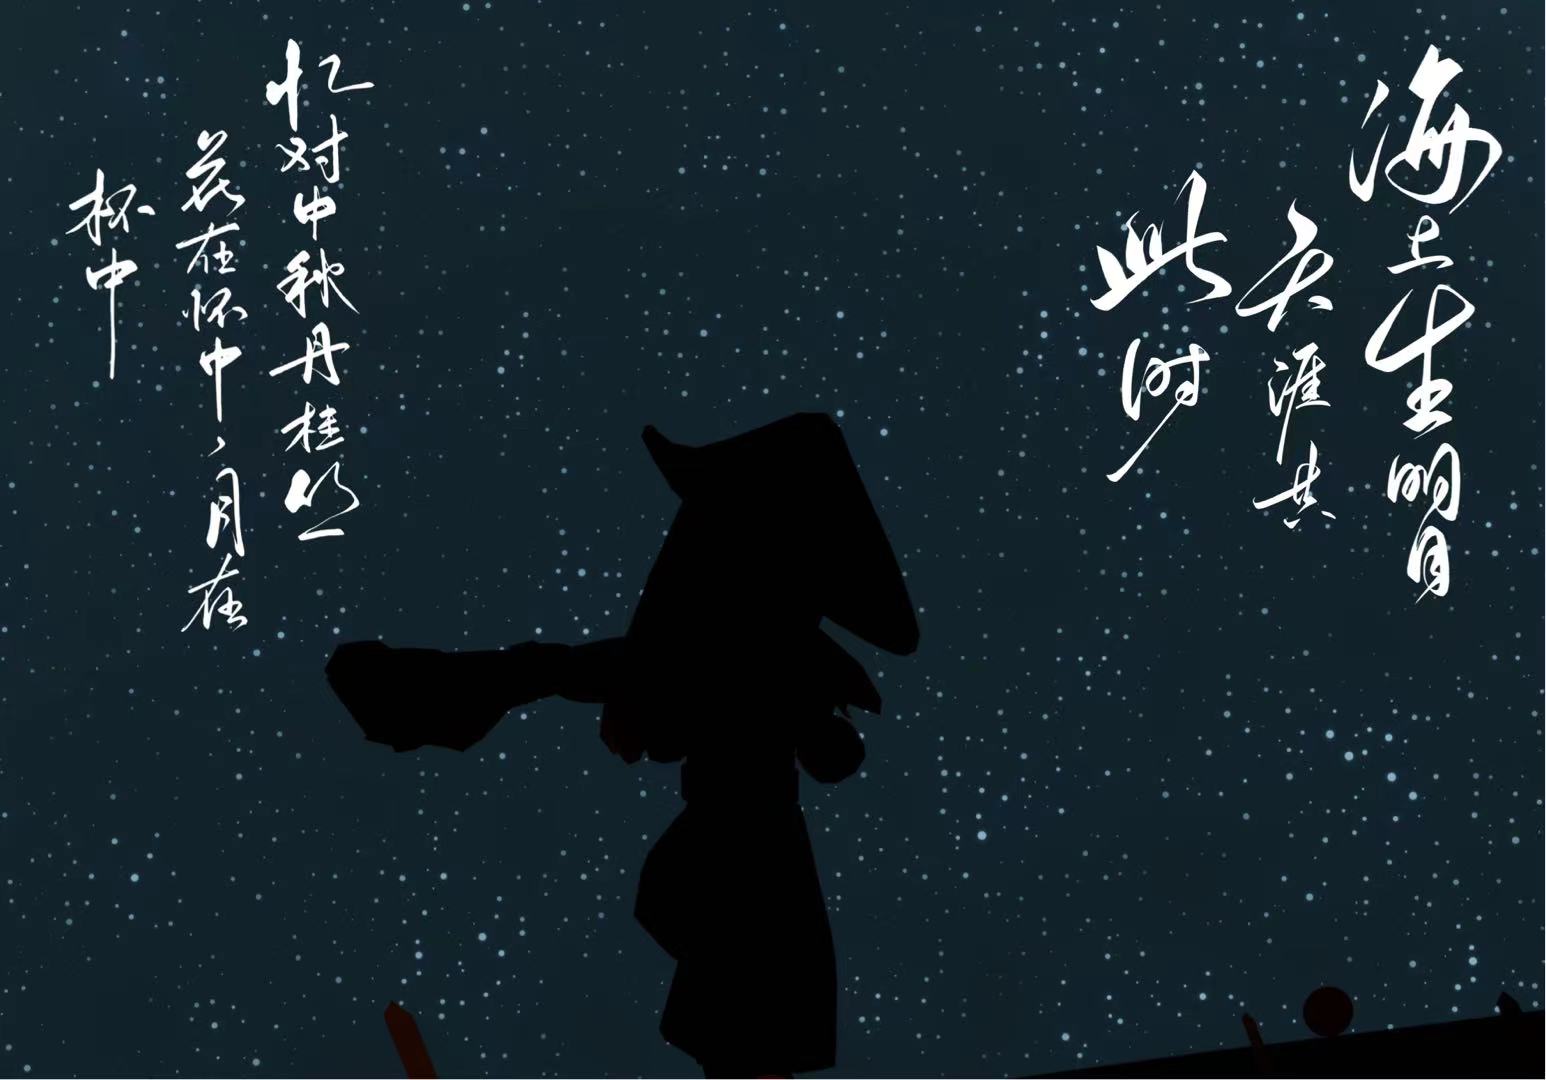 海上生明月
天涯共
此时
忆对中秋丹桂丛
花在怀中，月在
杯中